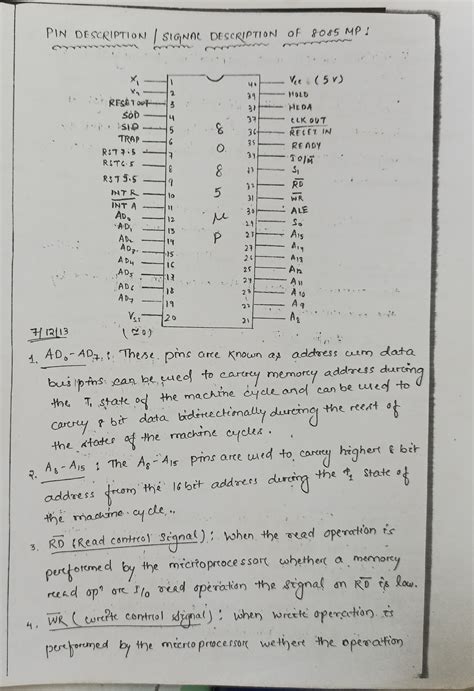 PIN DESCRIPTION / SIGNAL DESCRIPTION OF 8085 MP :
X1 1 40 Vcc (5V)
X2 2 39 HOLD
RESET OUT 3 HLDA
SOD 4 37 CLK OUT
SID 5 36 RESET IN
TRAP 6 35 READY
RST 7.5 7 34 IO/M̅
RST 6.5 8 33 S1
RST 5.5 9 32 R̅D̅
INTR 10 31 W̅R̅
I̅N̅T̅A̅ 11 30 ALE
AD0 12 29 S0
AD1 13 A15
AD2 14 27 A14
15 26 A13
AD4 16 25 A12
AD5 24 A11
AD6 18 A10
AD7 19 A9
Vss 20 21 A8
8 0 8 5 μ P
7/12/13
(≃0)
1. AD0-AD7 : These pins are known as address cum data
bus/pins can be used to carry memory address during
the T1 state of the machine cycle and can be used to
carry 8 bit data bidirectionally during the rest of
the states of the machine cycles.
2. A8-A15 : The A8-A15 pins are used to carry higher 8 bit
address from the 16 bit address during the T1 state of
the machine cycle..
3. R̅D̅ (Read control signal) : When the read operation is
performed by the microprocessor whether a memory
read opn or I/O read operation the signal on R̅D̅ is low.
4. W̅R̅ (write control signal) : when write operation is
performed by the microprocessor wethere the operation